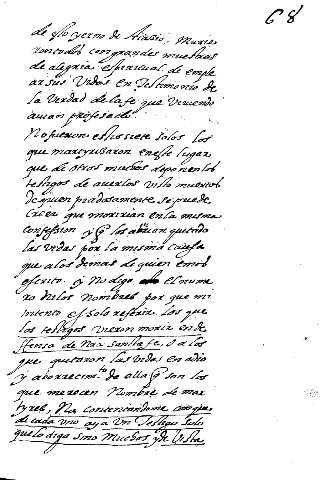 68
de ello yerno de Ananio, Murie-
ron todos con grandes muestras
de alegria espiritual de emple
ar sus Vidas en Testimonio de
la Verdad de la fe que Viviendo
avian profesado.
No fueron estos siete solos los
que martyrizaron en este lugar
que de otros muchos deponen los
testigos de averlos visto muertos
de quien piadosamente se puede
creer que moririan en la misma
confession y q̃ los avian quitado
las vidas por la misma causa
que a los demas de quien emos
escrito. y No digo el nume
ro de los Nombres por que mi
intento es solo referir los que
los testigos vieron morir en de
ffensa de Nra Santa fe, o a los
que quitaron las vidas en odio
y aborrecimto de ella q̃ son los
que merecen Nombre de mar
tyres, No contentandome con que
de cada uno aya Un Testigo Solo
que lo diga sino Muchos y de Vista